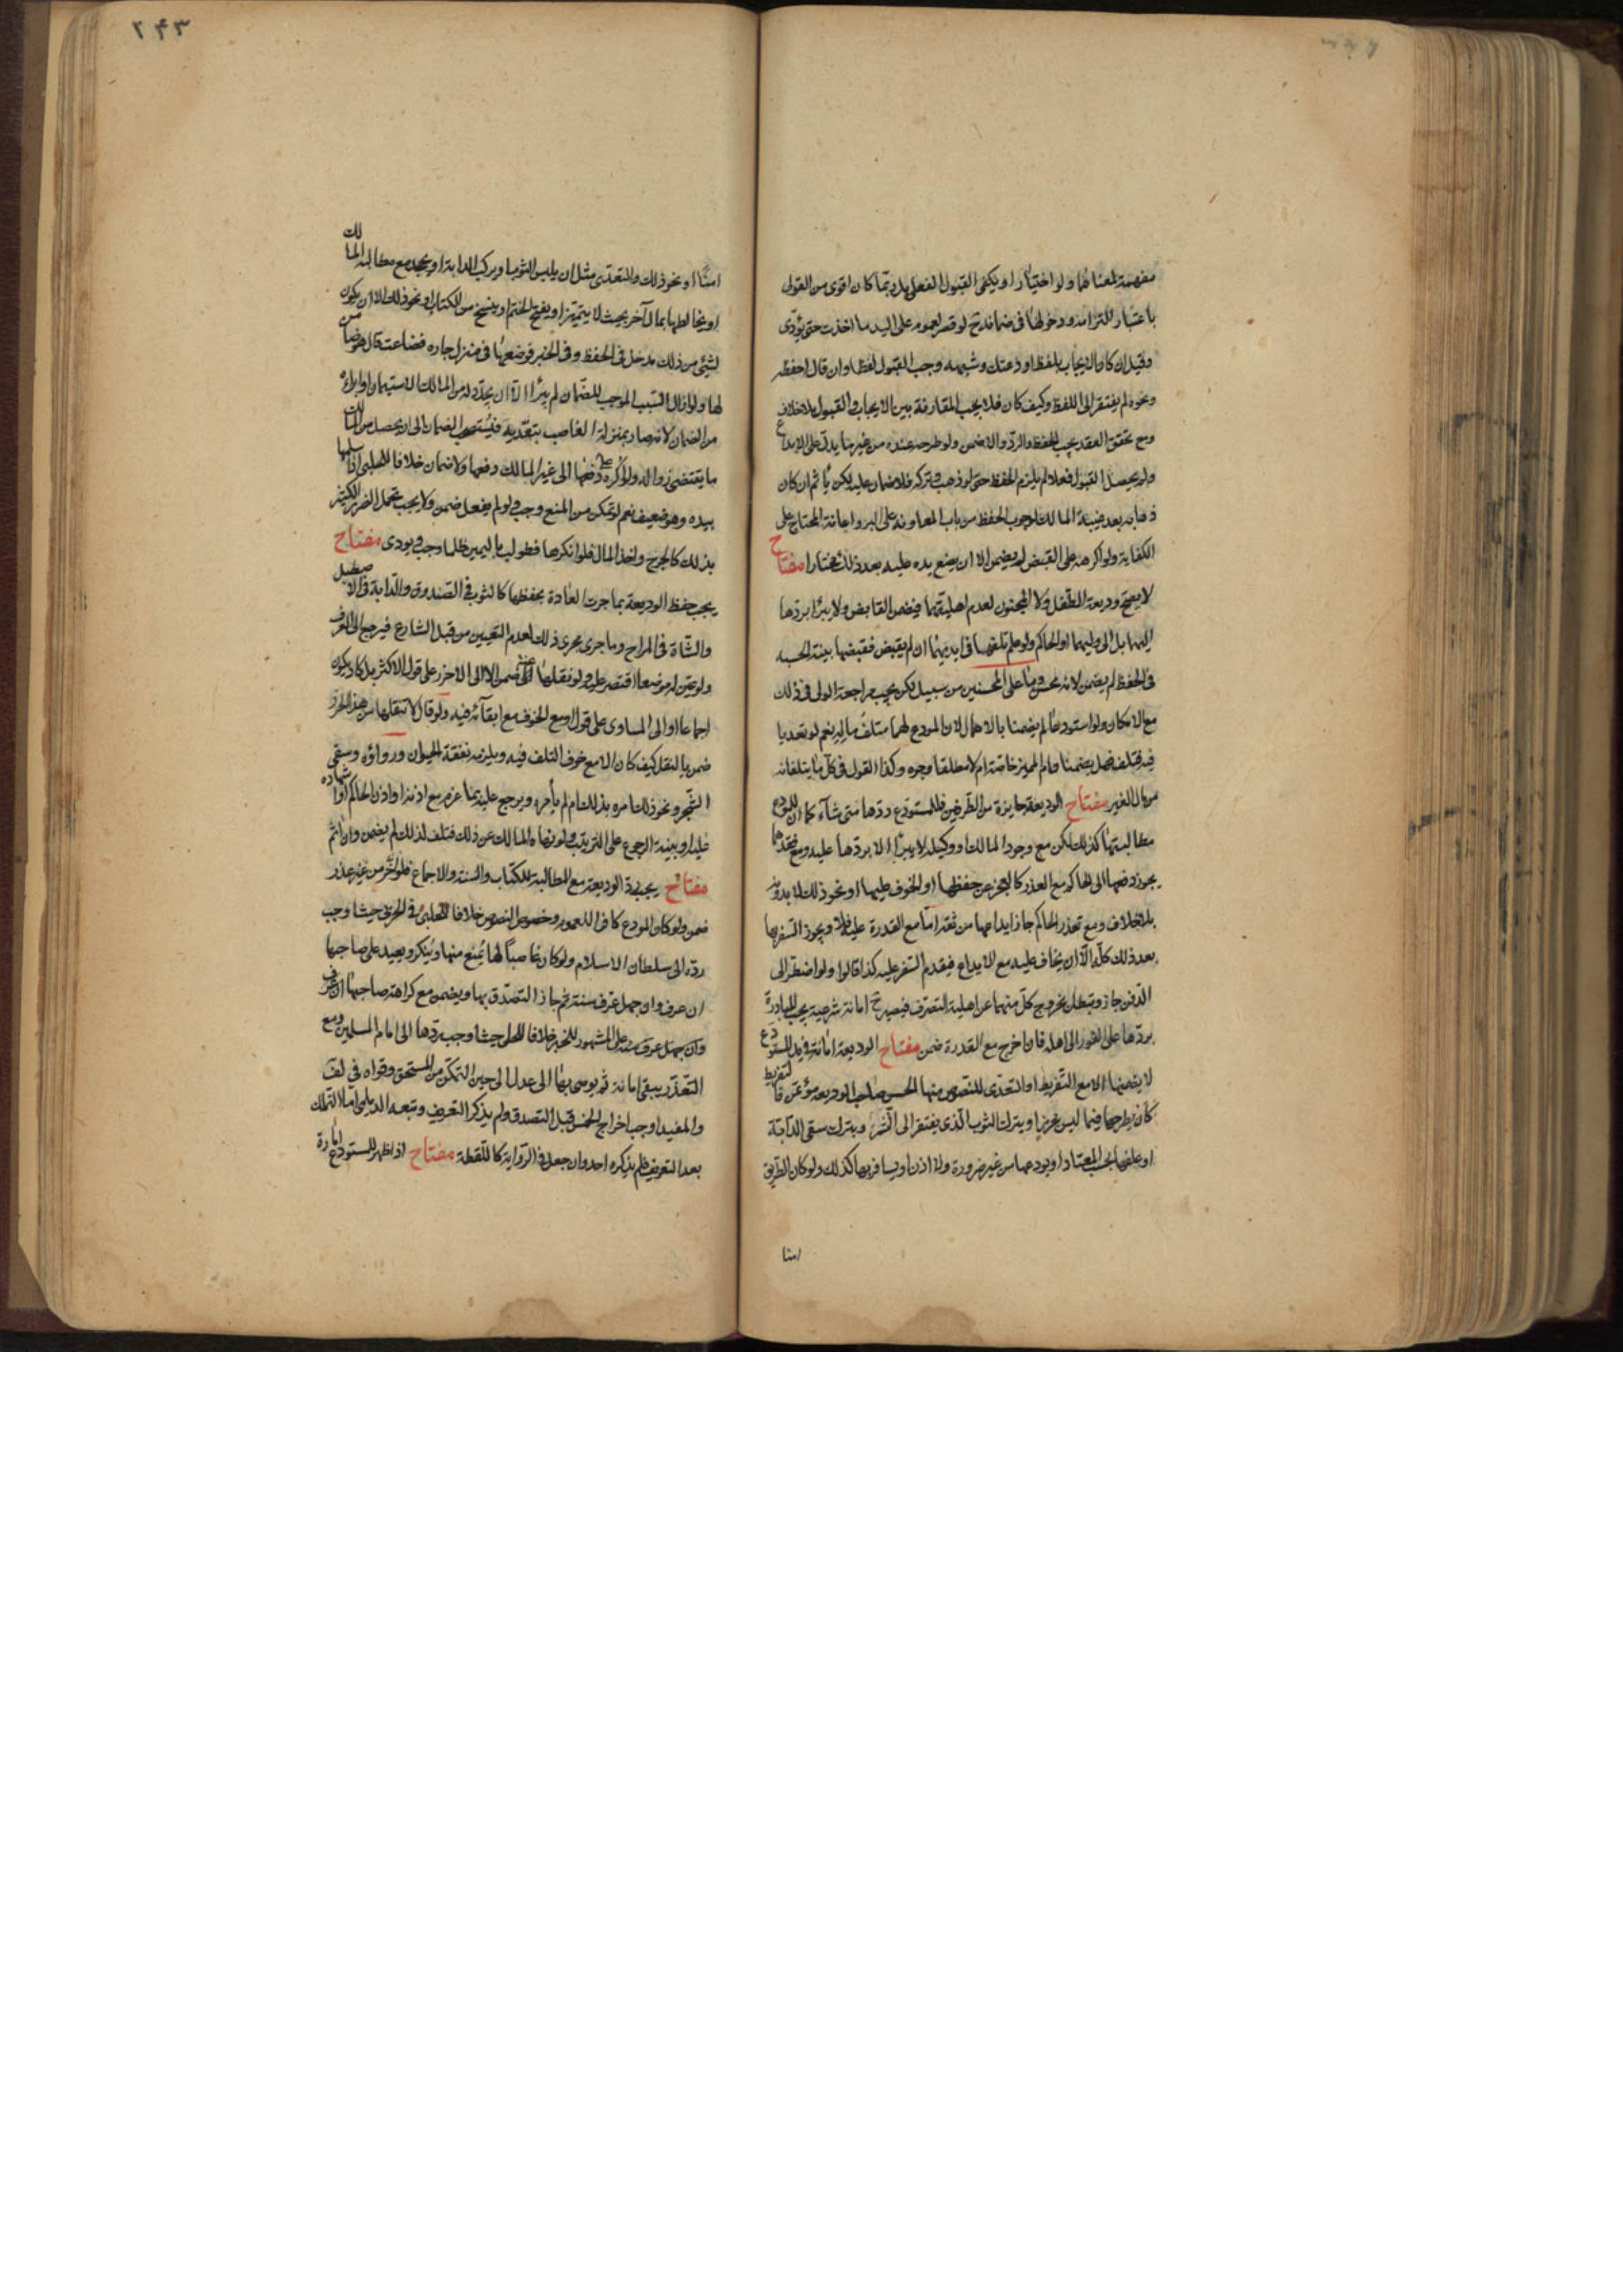 مفهمة لمعناهما ولو اختيارا ويكفى القبول الفعلى بل ربما كان اقوى من القولى
باعتبار التزامه ودخولها فى ضمانه ح لو قصر لعموم على اليد ما اخذت حتى يؤدى
وقيل ان كان الايجاب بلفظ اودعتك وشبهه وجب القبول لفظا وان قال احفظه
ونحوه لم يفتقر الى اللفظ وكيف كان فلا يجب المقارنة بين الايجاب والقبول بلا خلاف
ومع تحقق العقد يجب الحفظ والرد والا ضمن ولو طرحه عنده من غير ما يدل على الايداع
ولم يحصل القبول فعلا لم يلزم الحفظ حتى لو ذهب وتركه فلا ضمان عليه لكن يأثم ان كان
ذهابه بعد غيبة المالك لوجوب الحفظ من باب المعاونة على البر واعانة المحتاج على
الكفاية ولو اكرهه على القبض لم يضمن الا ان يضع يده عليه بعد ذلك مختارا مفتاح
لا يصح وديعة الطفل ولا المجنون لعدم اهليتهما فيضمن القابض ولا يبرأ بردها
اليهما بل الى وليهما او الحاكم ولو علم تلفها فى ايديهما ان لم يقبض فقبضها بنية الحسبة
فى الحفظ لم يضمن لانه محسن وما على المحسنين من سبيل لكن يجب مراجعة الولى فى ذلك
مع الامكان ولو استودعا لم يضمنا بالاهمال لان المودع لهما متلف ماله نعم لو تعديا
فيه فتلف فهل يضمنا وام المميز خاصة ام لا مطلقا وجوه وكذا القول فى كل ما يتلفانه
من مال الغير مفتاح الوديعة جايزة من الطرفين فللمستودع ردها متى شاء كما ان للمودع
مطالبتها كذلك لكن مع وجود المالك او وكيله لا يبرأ الا بردها عليه ومع فقدهما
يجوز دفعها الى الحاكم مع العذر كالعجز عن حفظها او الخوف عليها او نحو ذلك لا بدونه
بلا خلاف ومع تعذر الحاكم جاز ايداعها من ثقة اما مع القدرة عليه فلا ويجوز السفر بها
بعد ذلك كله الا ان يخاف عليه مع الايداع فيقدم السفر عليه كذا قالوا ولو اضطر الى
الدفن جاز وتبطل بخروج كل منهما عن اهلية التصرف فيصير ح امانة شرعية يجب المبادرة
بردها على الفور الى اهله فان اخرج مع القدرة ضمن مفتاح الوديعة امانة فى يد المستودع
لا يضمنها الا مع التفريط او التعدى للنصوص منها الحسن صاحب الوديعة مؤتمن فالتفريط
كان يطرحها فيما ليس بحرز او يترك الثوب الذى يفتقر الى النشر او يترك سقى الدابة
او علفها بحسب المعتاد او يودعها من غير ضرورة ولا اذن او يسافر بها كذلك ولو كان الطريق
امنا
٢٩٣
امنا او نحو ذلك والتعدى مثل ان يلبس الثوب او يركب الدابة او يجحد مع مطالبة المالك
او يخالطها بمال آخر بحيث لا يتميز او يفتح الختم او ينسخ من الكتاب او نحو ذلك الا ان يكون
لشئ من ذلك مدخل فى الحفظ وفى الخبر فوضعها فى منزل جاره فضاعت قال هو ضامن
لها ولو ازال السبب الموجب للضمان لم يبرأ الا ان يجدد له من المالك الاستيمان او ابرأه
من الضمان لانه صار بمنزلة الغاصب بتعديه فيستصحب الضمان الى ان يحصل من المالك
ما يقتضى زواله ولو اكره على دفعها الى غير المالك دفعها ولا ضمان خلافا للحلبى اذا سلمها
بيده وهو ضعيف نعم لو تمكن من المنع وجب ولو لم يفعل ضمن ولا يجب تحمل الضرر الكثير
بذلك كالجرح واخذ المال فلو انكرها فطولب باليمين ظلما وجب ويورى مفتاح
يجب حفظ الوديعة بما جرت العادة بحفظها كالثوب فى الصندوق والدابة فى الاصطبل
والشاة فى المراح وما جرى مجرى ذلك لعدم التعيين من قبل الشارع فيرجع الى العرف
ولو عين له موضعا اقتصر عليه ولو نقلها ضمن الا الى الاحرز على قول الاكثر بل كاد يكون
اجماعا او الى المساوى على قول او مع الخوف مع ابقائه فيه ولو قال لا تنقلها من هذا الحرز
ضمن بالنقل كيف كان الا مع خوف التلف فيه ويلزمه نفقة الحيوان ودواؤه وسقى
الشجر ونحو ذلك امره بذلك ام لم يأمره ويرجع عليه بما غرم مع اذنه او اذن الحاكم او اشهاده
عليه او بنية الرجوع على الترتيب ولو نهاه المالك عن ذلك فتلف لذلك لم يضمن وان اثم
مفتاح يجب رد الوديعة مع المطالبة للكتاب والسنة والاجماع فلو اخر من غير عذر
ضمن ولو كان المودع كافرا للعموم وخصوص النصوص خلافا للحلبى فى الحربى حيث اوجب
رده الى سلطان الاسلام ولو كان غاصبا لها يمنع منها وينكر ويعيد على صاحبها
ان عرف وان جهل عرف سنة ثم جاز التصدق بها ويضمن مع كراهة صاحبها ان عرف
وان جهل عرف سنة على المشهور للخبر خلافا للحلى حيث اوجب ردها الى امام المسلمين ومع
التعذر يبقى امانة ثم يوصى بها الى عدل الى حين التمكن من المستحق وقواه فى لف
والمفيد اوجب اخراج الخمس قبل التصدق ولم يذكر التعريف وتبعه الديلمى اما التملك
بعد التعريف فلم يذكره احد وان جعل فى الرواية كاللقطة مفتاح اذا ظهر للمستودع امارة